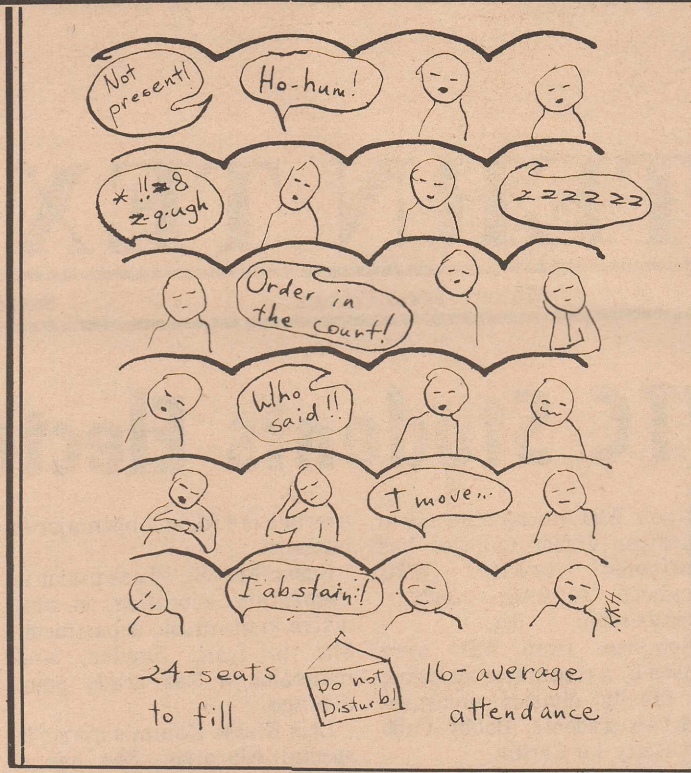 Not
present!
Ho-hum!
* !!*&
z-q-ugh
zzzzzzz
Order in
the court!
Who
said!!
I move...
I abstain!
KKH
24-seats
to fill
Do not
Disturb!
16-average
attendance